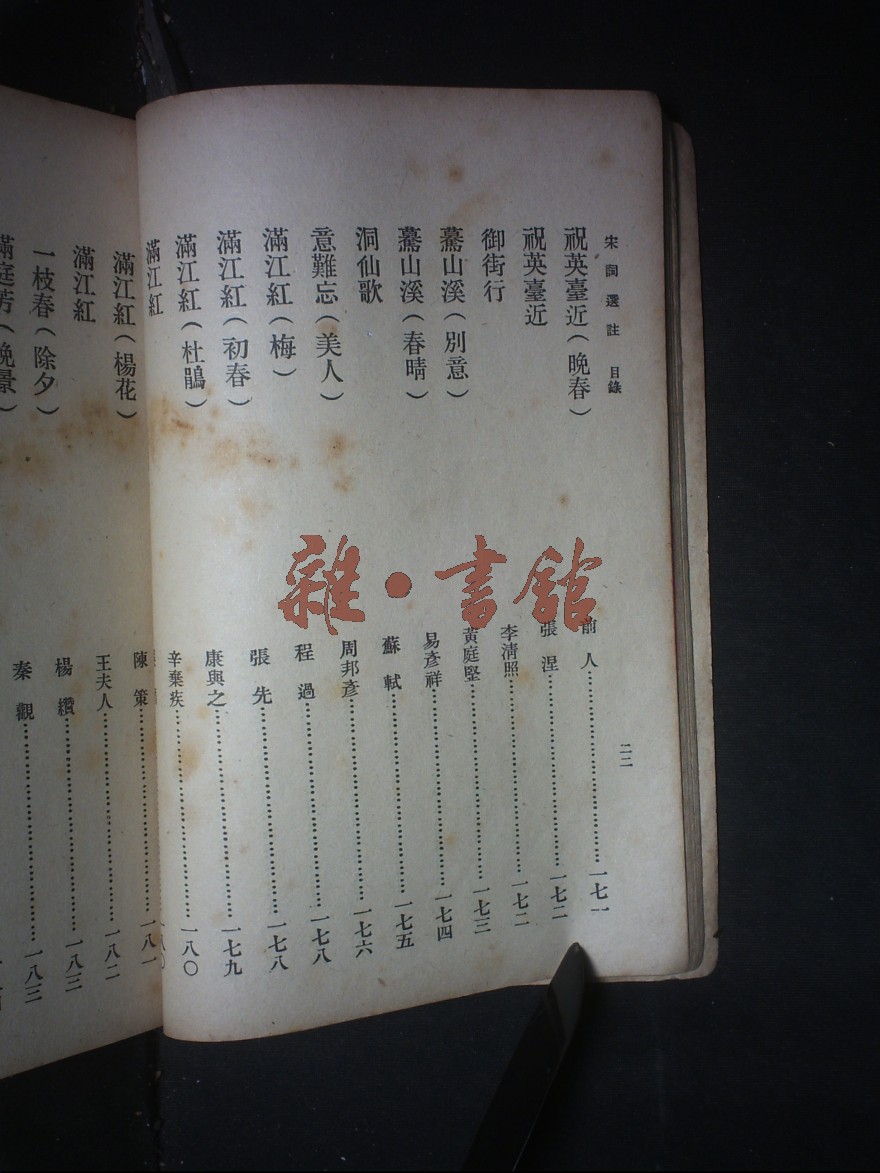 宋詞選註 目錄
二二
祝英臺近(晚春) 前人 一七一
祝英臺近 張涅 一七二
御街行 李清照 一七二
驀山溪(別意) 黃庭堅 一七三
驀山溪(春晴) 易彥祥 一七四
洞仙歌 蘇軾 一七五
意難忘(美人) 周邦彥 一七六
滿江紅(梅) 程過 一七八
滿江紅(初春) 張先 一七八
滿江紅(杜鵑) 康與之 一七九
滿江紅 辛棄疾 一八〇
滿江紅(楊花) 陳策 一八一
滿江紅 王夫人 一八二
一枝春(除夕) 楊纘 一八三
滿庭芳(晚景) 秦觀 一八三
雜·書館